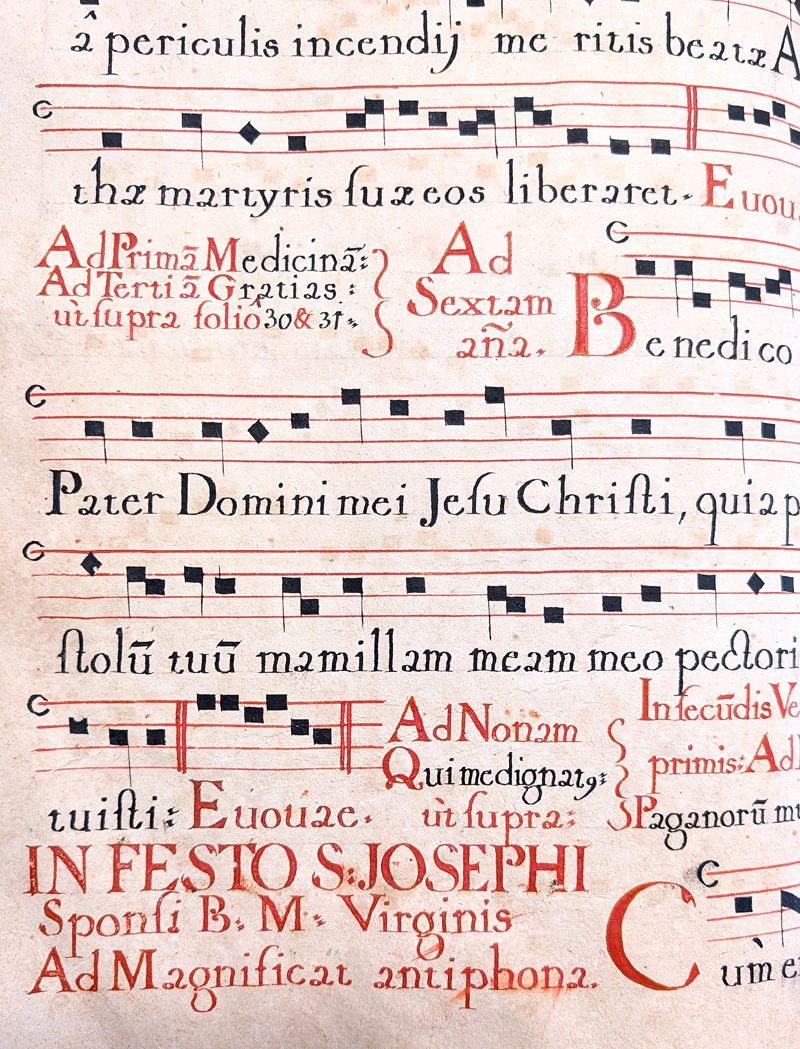 â periculis incendij me ritis beatæ A
thæ martyris ſuæ eos liberaret. Euou
Ad Primã Medicinã:
Ad Tertiã Gratias:
ùt ſupra folio 30 & 31.
Ad
Sextam
añã.
Benedico
Pater Domini mei Jeſu Chriſti, quia p
ſtolũ tuũ mamillam meam meo pectori
tuiſti: Euouae.
Ad Nonam
Qui me dignatꝯ:
ùt ſupra:
In ſecũdis Ve
primis: Ad
Paganorũ mu
IN FESTO S: JOSEPHI
Sponſi B. M. Virginis
Ad Magnificat antiphona.
Cùm e